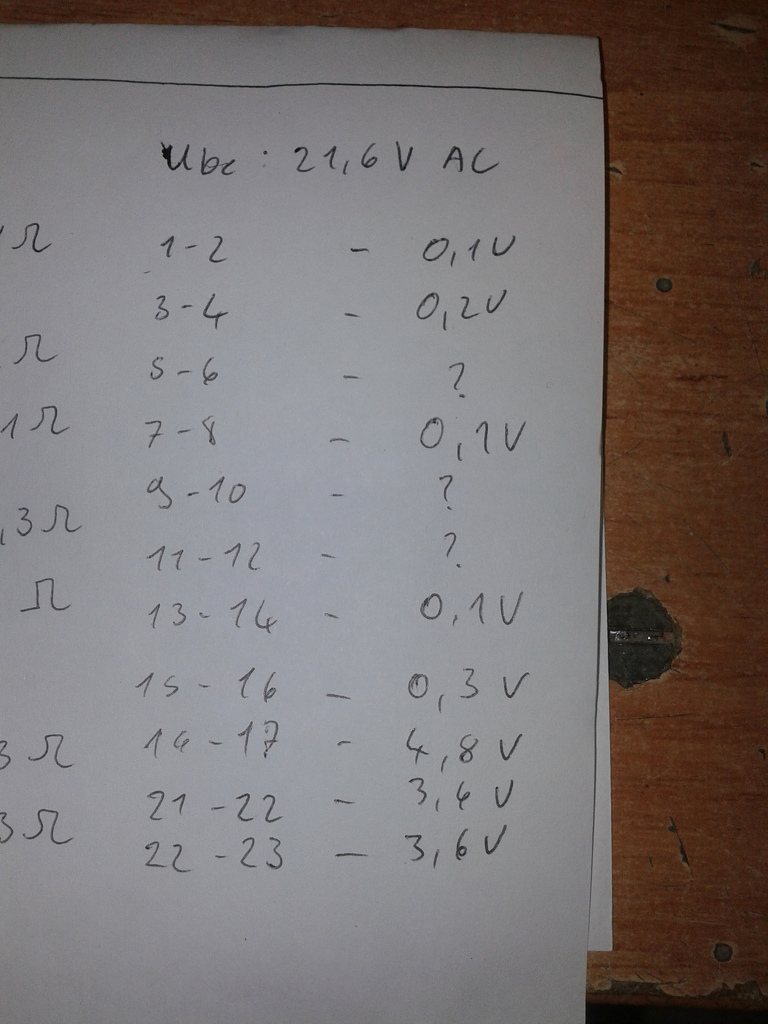 Ubc : 21,6 V AC
Ω 1-2 - 0,1V
3-4 - 0,2V
Ω 5-6 - ?
1Ω 7-8 - 0,1V
9-10 - ?
,3Ω 11-12 - ?
Ω 13-14 - 0,1V
15-16 - 0,3 V
3Ω 16-17 - 4,8 V
3Ω 21-22 - 3,6 V
22-23 - 3,6 V